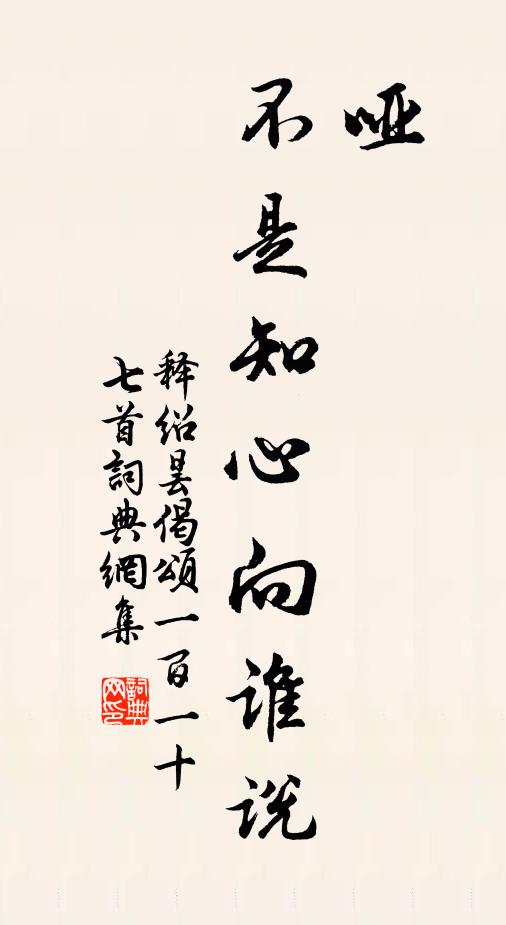 哑
不是知心向谁说
释绍昙偈頌一百一十
七首詞典網集
詞典
网印